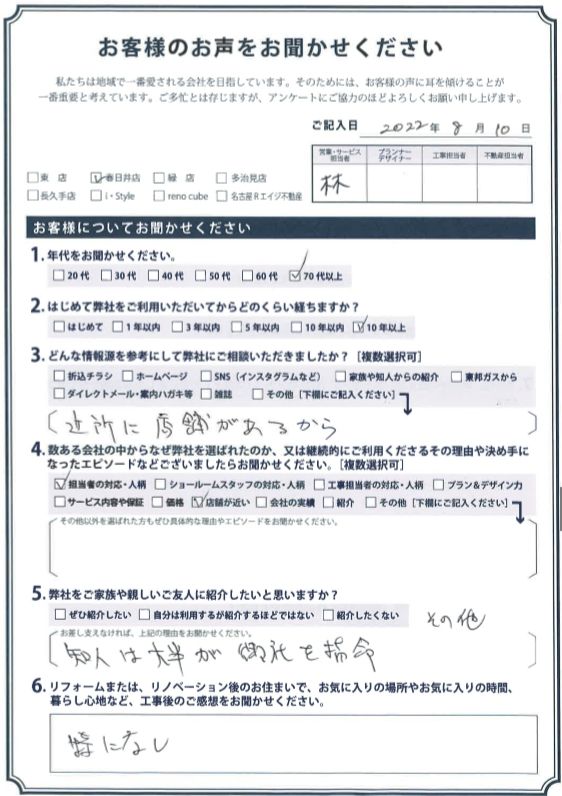 お客様のお声をお聞かせください
私たちは地域で一番愛される会社を目指しています。そのためには、お客様の声に耳を傾けることが
一番重要と考えています。ご多忙とは存じますが、アンケートにご協力のほどよろしくお願い申し上げます。
ご記入日 2022年 8月 10日
営業・サービス担当者 プランナーデザイナー 工事担当者 不動産担当者
林
□東 店 ☑春日井店 □緑 店 □多治見店
□長久手店 □i・Style □reno cube □名古屋Rエイジ不動産
お客様についてお聞かせください
1. 年代をお聞かせください。
□20代 □30代 □40代 □50代 □60代 ☑70代以上
2. はじめて弊社をご利用いただいてからどのくらい経ちますか？
□はじめて □1年以内 □3年以内 □5年以内 □10年以内 ☑10年以上
3. どんな情報源を参考にして弊社にご相談いただきましたか？［複数選択可］
□折込チラシ □ホームページ □SNS（インスタグラムなど） □家族や知人からの紹介 □東邦ガスから
□ダイレクトメール・案内ハガキ等 □雑誌 □その他［下欄にご記入ください］
近所に店舗があるから
4. 数ある会社の中からなぜ弊社を選ばれたのか、又は継続的にご利用くださるその理由や決め手に
なったエピソードなどございましたらお聞かせください。［複数選択可］
☑担当者の対応・人柄 □ショールームスタッフの対応・人柄 □工事担当者の対応・人柄 □プラン＆デザイン力
□サービス内容や保証 □価格 ☑店舗が近い □会社の実績 □紹介 □その他［下欄にご記入ください］
その他以外を選ばれた方もぜひ具体的な理由やエピソードをお聞かせください。
5. 弊社をご家族や親しいご友人に紹介したいと思いますか？
□ぜひ紹介したい □自分は利用するが紹介するほどではない □紹介したくない その他
お差し支えなければ、上記の理由をお聞かせください。
知人は大半が御社を指命
6. リフォームまたは、リノベーション後のお住まいで、お気に入りの場所やお気に入りの時間、
暮らし心地など、工事後のご感想をお聞かせください。
特になし